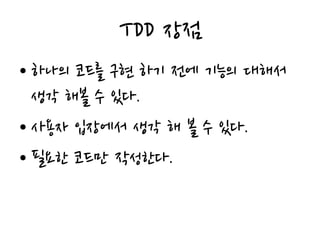 TDD 장점
• 하나의 코드를 구현 하기 전에 기능의 대해서
생각 해볼 수 있다.
• 사용자 입장에서 생각 해 볼 수 있다.
• 필요한 코드만 작성한다.